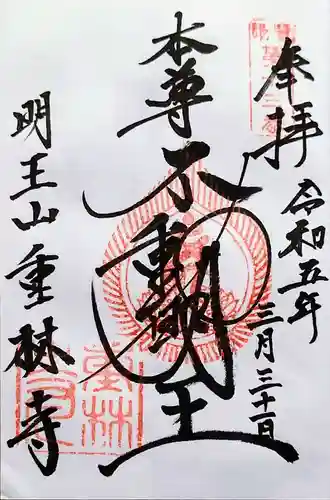 奉拝
令和五年
三月三十一日
本尊
不動明王
明王山重林寺
重林寺